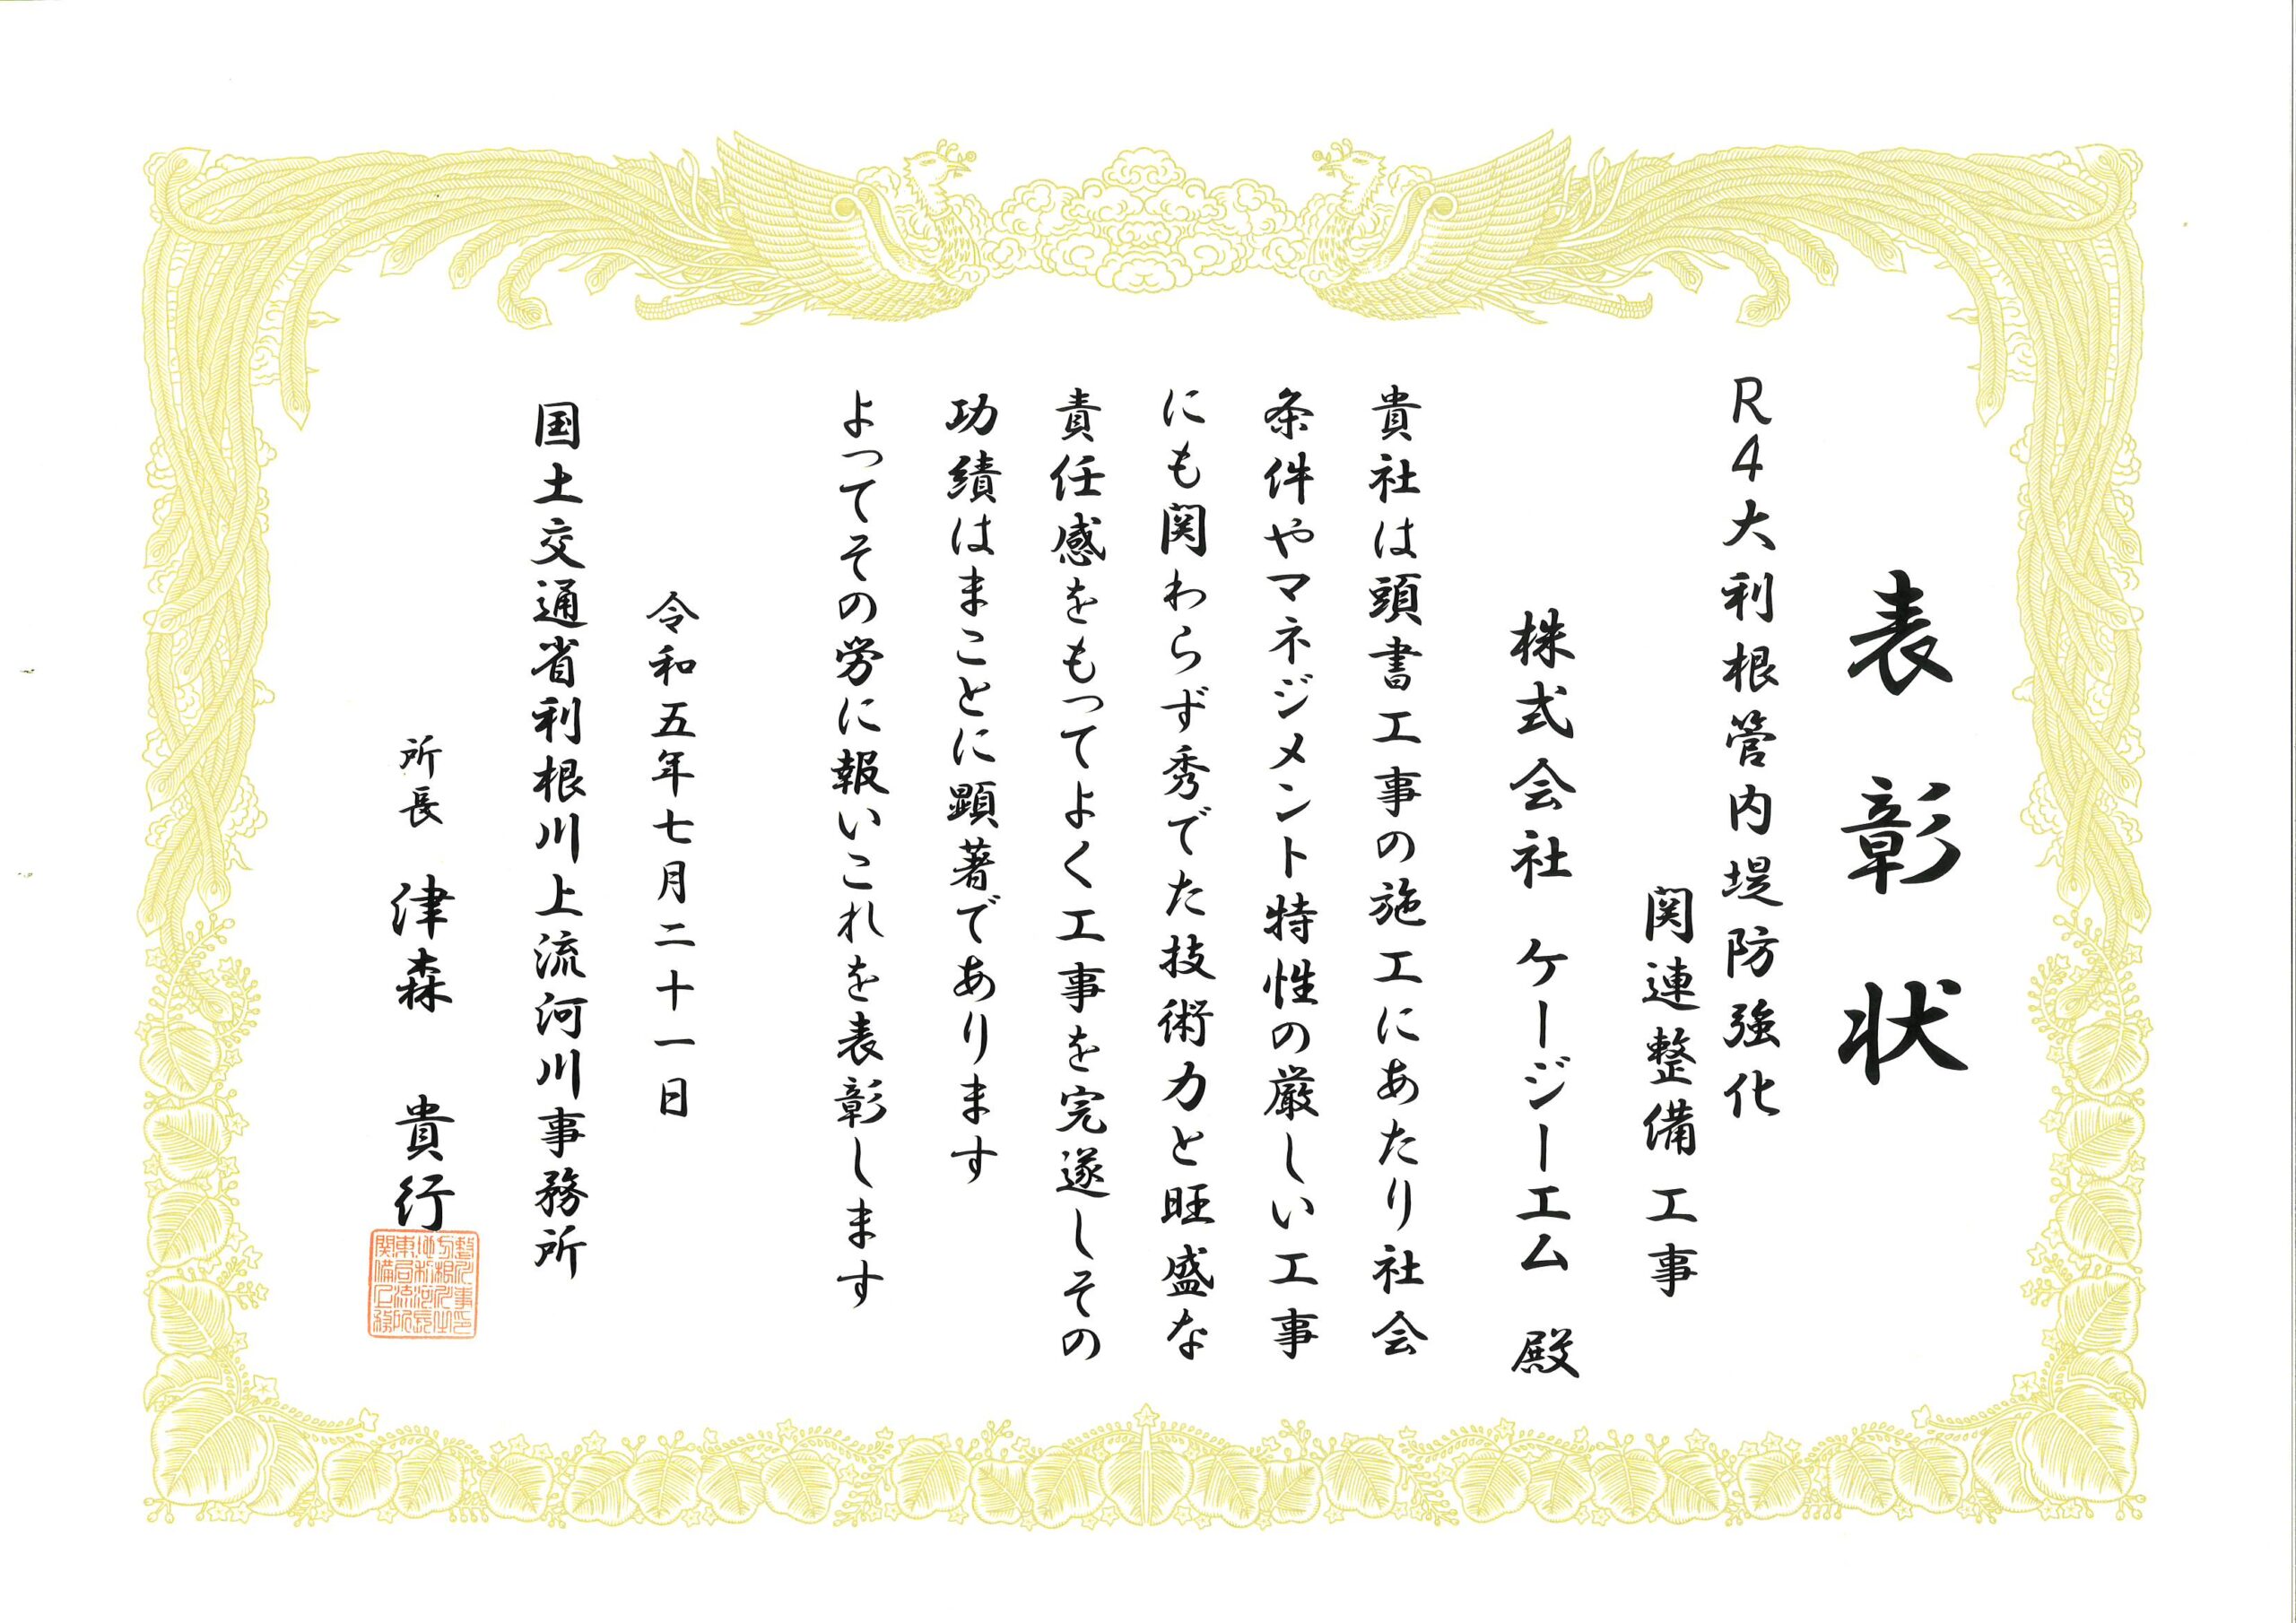 表彰状
R4大利根管内堤防強化
関連整備工事
株式会社 ケージーエム 殿
貴社は頭書工事の施工にあたり社会
条件やマネジメント特性の厳しい工事
にも関わらず秀でた技術力と旺盛な
責任感をもってよく工事を完遂しその
功績はまことに顕著であります
よってその労に報いこれを表彰します
令和五年七月二十一日
国土交通省利根川上流河川事務所
所長 津森 貴行